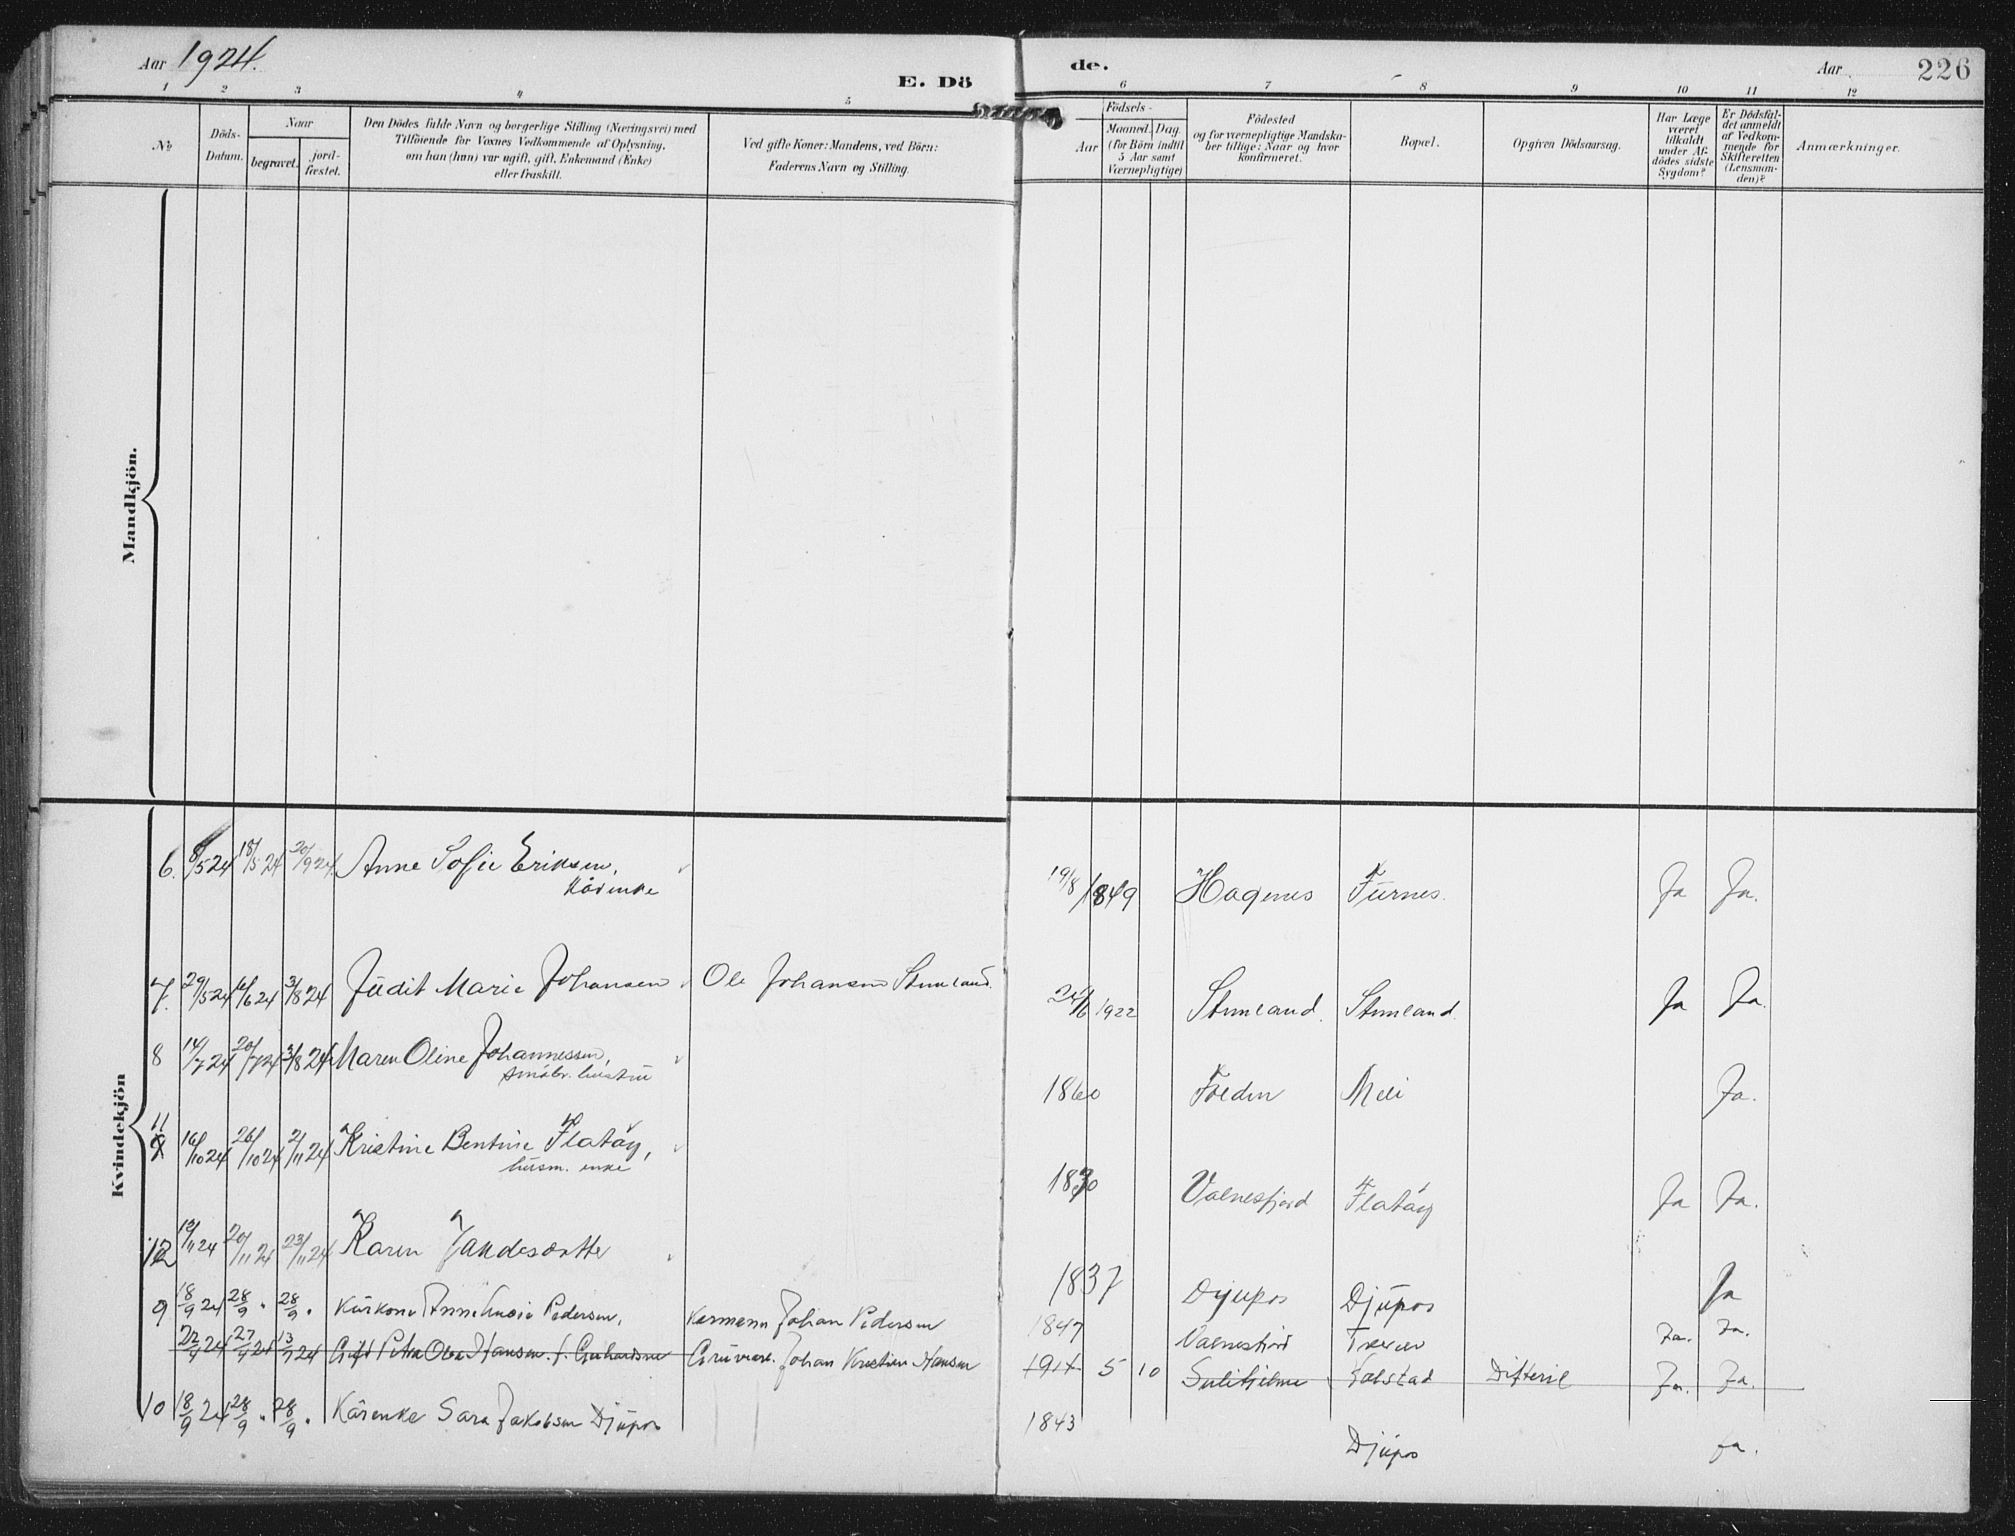 Aar 1924.
E. Dö
de.
Aar
226
1 2 3 4 5 6 7 8 9 10 11 12
No
Döds-
Datum.
Naar
begravet.
jord-
fæstet.
Den Dödes fulde Navn og borgerlige Stilling (Næringsvei) med
Tilföiende for Voxnes Vedkommende af Oplysning,
om han (hun) var ugift, gift, Enkemand (Enke)
eller fraskilt.
Ved gifte Koner: Mandens, ved Börn:
Faderens Navn og Stilling.
Födsels-
Aar
Maaned. Dag.
(for Börn indtil
5 Aar samt
Værnepligtige)
Födested
og for værnepligtige Mandska-
ber tillige: Naar og hvor
konfirmeret.
Bopæl.
Opgiven Dödsaarsag.
Har Læge
været
tilkaldt
under Af-
dödes sidste
Sygdom?
Er Dödsfal-
det anmeldt
af Vedkom-
mende for
Skifteretten
(Lensman-
den)?
Anmærkninger.
Mandkjön.
Kvindekjön
6. 8/5 24 18/5 24 20/9 24. Anne Sofie Eriksen, 19/8 1849 Hagenes Furnes. Ja Ja.
kårenke
7. 29/5 24 6/6 24 3/8 24 Judit Marie Johansen Ole Johansen 24/6 1922 Ja Ja.
8 14/7 24 20/7 24 3/8 24 Maren Oline Johannessen, 1860 Ja.
småbr. hustru
11 16/10 24 26/10 24 2/11 24 Kristine Bentine Flatöy, Valnesfjord Flatöy Ja Ja.
husm. enke
12 20/11 24 23/11 24 Karen 1837 Djupos Djupos Ja
9 18/9 24 28/9 " 28/9 " Pedersen, Johan Pedersen 1847 Valnesfjord Ja. Ja.
27/4 24 24 Petra Hansen Johan Kristian Hansen 1914 5 10 Sulitjelma Difteri Ja. Ja.
10 18/9 24 28/9 " 28/9 " Kårenke Sara Jakobsen Djupos 1843 Djupos Ja.